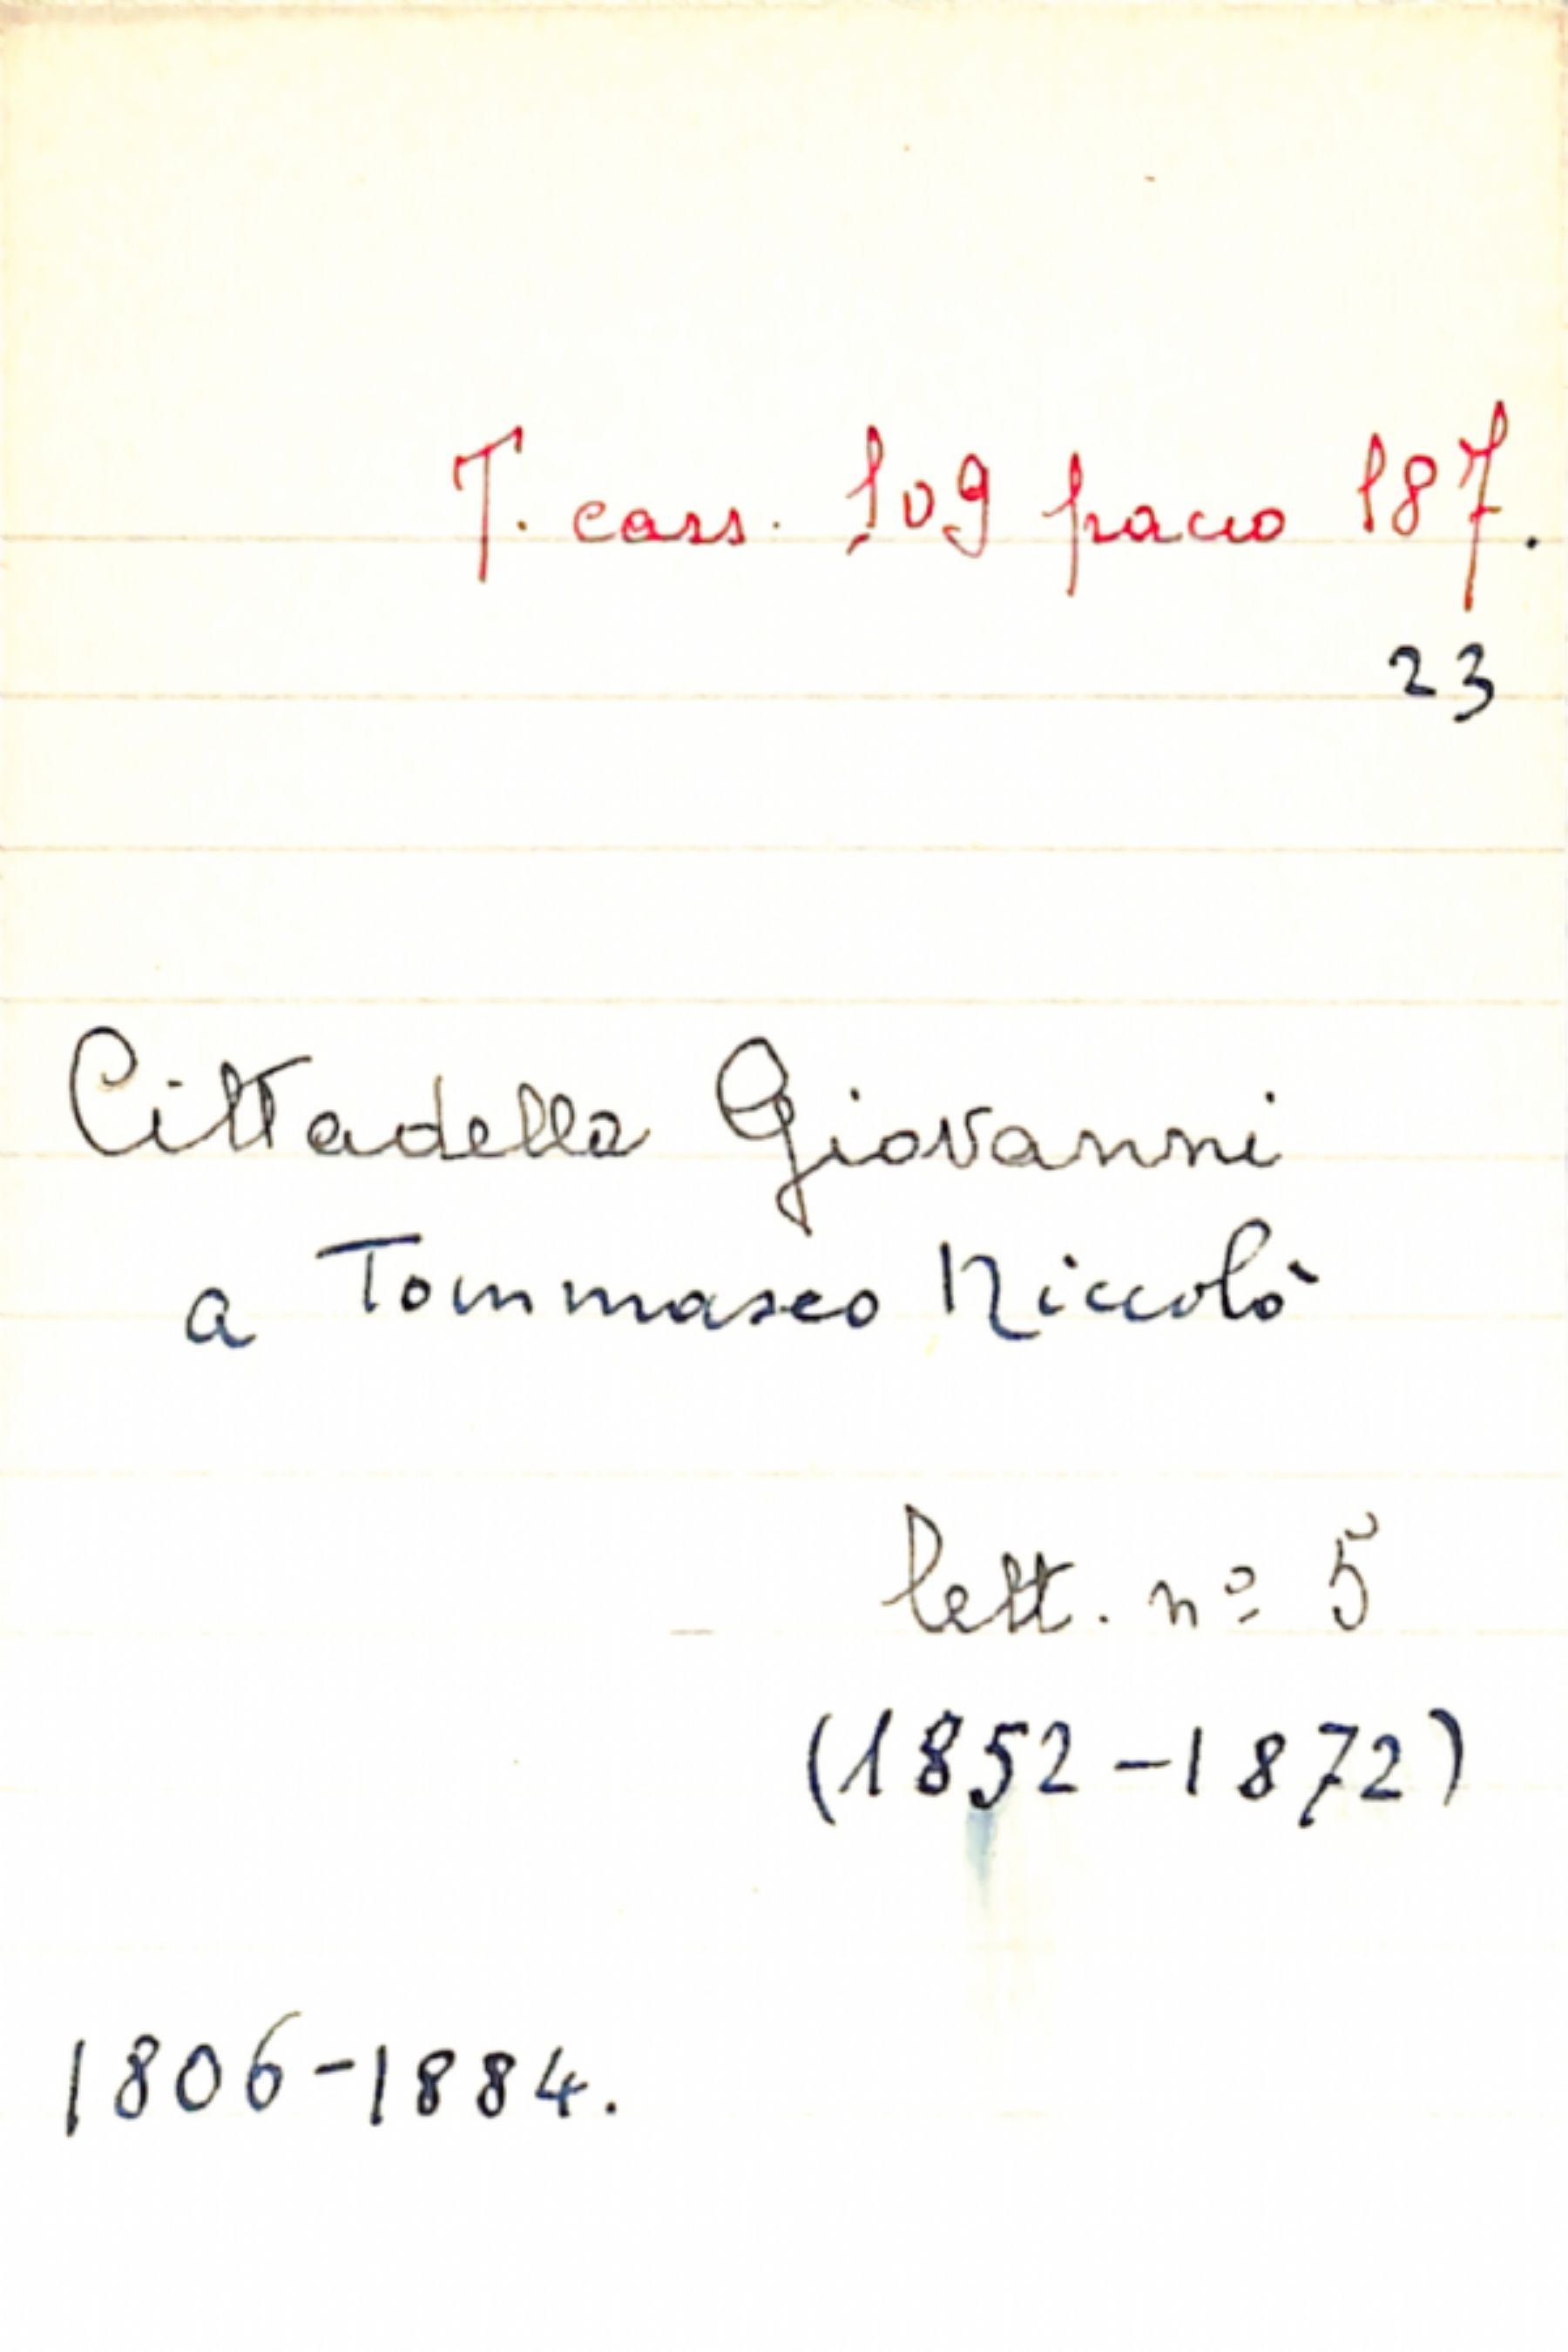 T. cass. 109 pacco 187.
23
Cittadella Giovanni
a Tommaseo Niccolò
lett. nº 5
(1852-1872)
1806-1884.